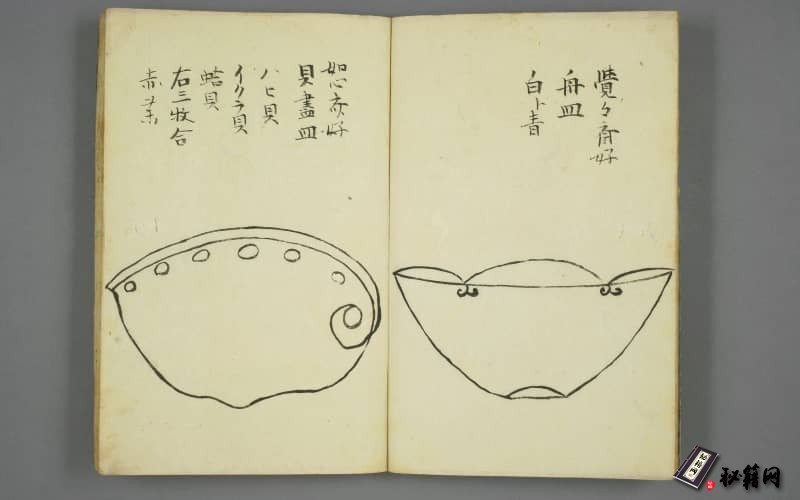 覺々斎好
舟皿
白ト青
如心斎好
貝盡皿
ハヒ貝
イクラ貝
蛤貝
右三枚合
赤楽
秘籍网